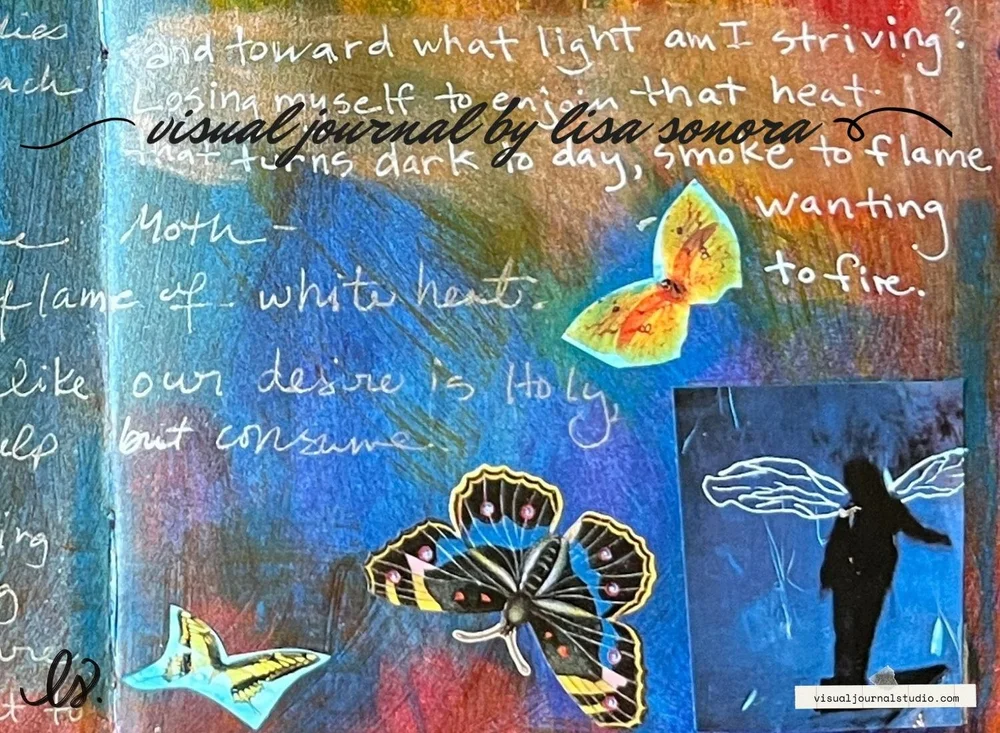 and toward what light am I striving?
Losing myself to enjoin that heat.
visual journal by lisa sonora
that turns dark to day, smoke to flame
wanting
to fire.
Moth -
flame of - white heat.
like our desire is Holy,
but consume.
ls.
visualjournalstudio.com